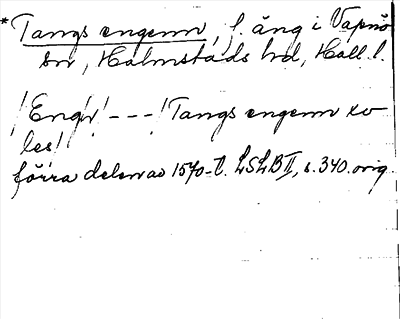 *Tangs engenn, f. äng i Vapnö
sn, Halmstads hd, Hall. l.
/Engr/ --- /Tangs engenn xv
les/
förra delen av 1570-t. LSLB II, s. 340. orig.